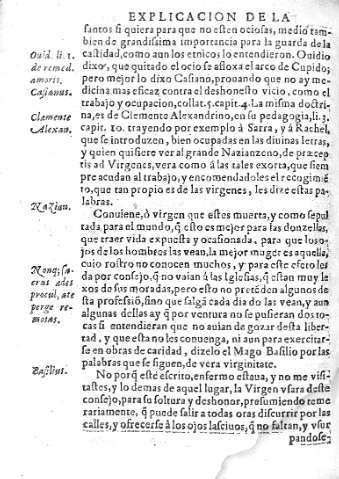 EXPLICACION DE LA
santos si quiera para que no esten ociosas, medio tam-
bien de grandissima importancia para la guarda de la
castidad, como aun los etnicos lo entendieron. Ouidio
dixo, que quitado el ocio se afloxa el arco de Cupido;
pero mejor lo dixo Casiano, prouando que no ay me-
dicina mas eficaz contra el deshonesto vicio, como el
trabajo y ocupacion, collat. 5. capit. 4. La misma doctri-
na, es de Clemente Alexandrino, en su pedagogia, li. 3.
capit. 10. trayendo por exemplo à Sarra, y à Rachel,
que se introduzen, bien ocupadas en las diuinas letras,
y quien quisiere ver al grande Nazianzeno, de præcep-
tis ad Virgines, vera como à las tales exorta, que siem
pre acudan al trabajo, y encomendadoles el recogimie
to, que tan propio es de las virgenes, les dize estas pa-
labras.
Conuiene, ò virgen que estes muerta, y como sepul
tada para el mundo, q̃ esto es mejor para las donzellas,
que traer vida expuesta y ocasionada, para que los o-
jos de los hombres las vean, la mejor muger es aquella,
cuio rostro no conocen muchos, y para este efeto les
da por consejo, q̃ no vaian à las Iglesias, q̃ estan muy le
xos de sus moradas, pero esto no pretẽden algunos de
sta professiõ, sino que salgã cada dia do las vean, y aun
algunas dellas ay q̃ por ventura no se pusieran dos to-
cas si entendieran que no auian de gozar desta liber-
tad, y que esta no les conuenga, ni aun para exercitar-
se en obras de caridad, dizelo el Mago Basilio por las
palabras que se siguen, de vera virginitate.
No porq̃ estè escrito, enfermo estaua, y no me visi-
tastes, y lo demas de aquel lugar, la Virgen vsara deste
consejo, para su soltura y deshonor, presumiendo teme
rariamente, q̃ puede salir a todas oras discurrir por las
calles, y ofrecerse à los ojos lasciuos, q̃ no faltan, y vsur
pandose
Ouid. li. 1.
de remed.
amoris.
Casianus.
Clemente
Alexan.
Nazian.
Nonq; sa-
cras ades
procul, ate
perge re-
motas.
Basilius.